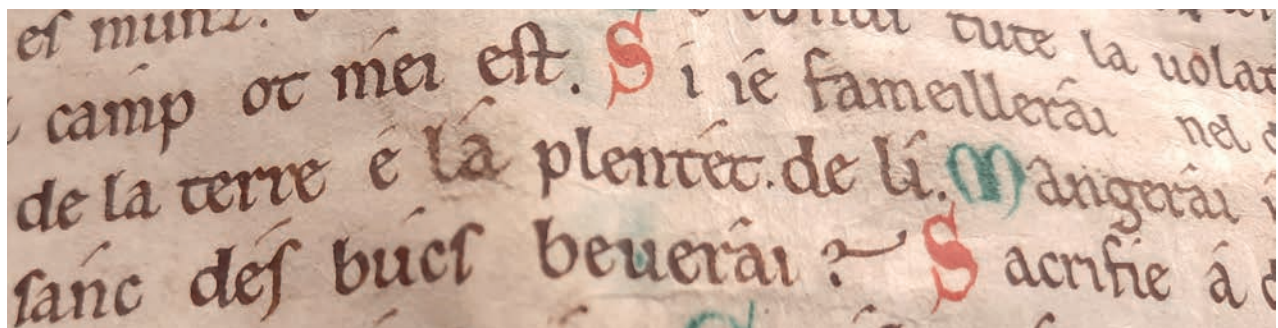 es munz.  conui tute la uolat
camp ot mei est. Si ie fameillerai nel
de la terre e la plentet. de li. Mangerai
sanc des bucs beuerai? Sacrifie a